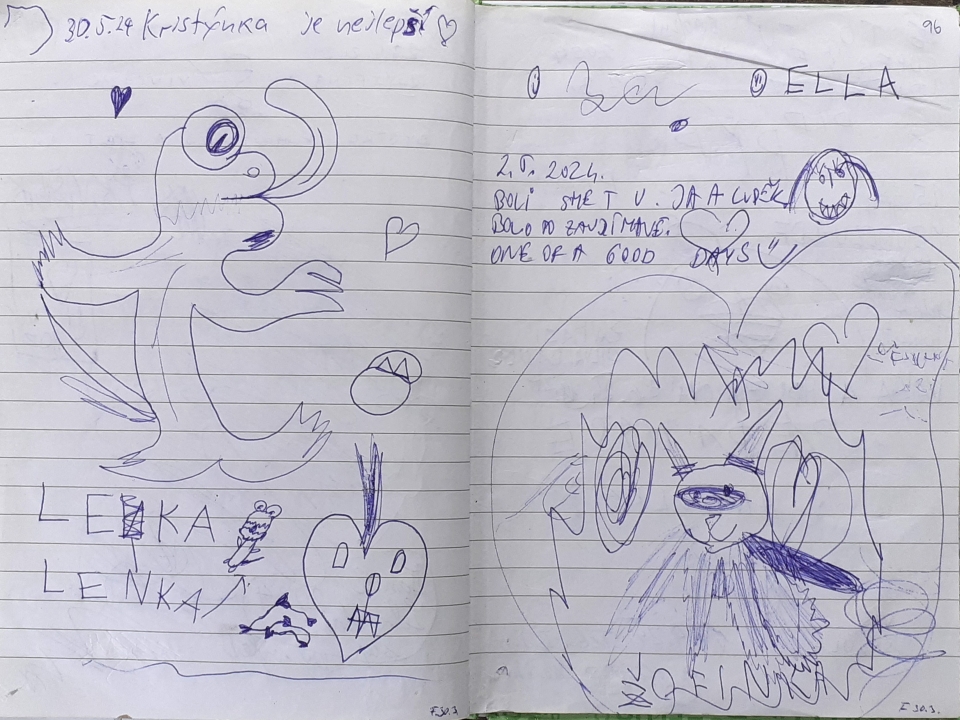 30.5.24 Kristýnka je nejlepší
LENKA
LENKA
96
ELLA
2.5.2024.
BOLI SME T U. JA A LUDĚK
BOLO TO ZAUJÍMAVÉ.
ONE OF A GOOD DAYS
F 30.3.
E 30.3.